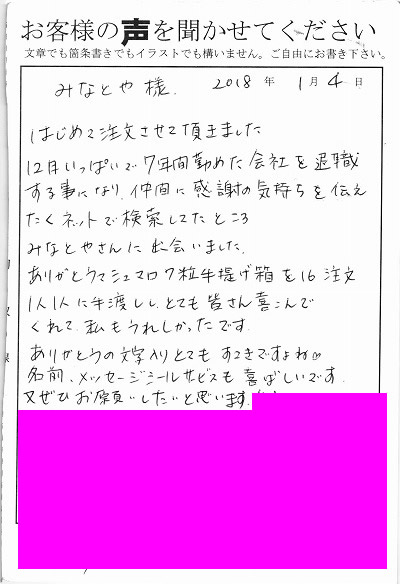 お客様の声を聞かせてください
文章でも箇条書きでもイラストでも構いません。ご自由にお書き下さい。
みなとや様. 2018年 1月4日
はじめて注文させて頂きました
12月いっぱいで7年間勤めた会社を退職
する事になり、仲間に感謝の気持ちを伝え
たくネットで検索してたところ
みなとやさんに出会いました.
ありがとうマシュマロ7粒手提げ箱を16注文
1人1人に手渡しし、とても皆さん喜こんで
くれて、私もうれしかったです.
ありがとうの文字入りとてもすてきですよね♡
名前、メッセージシールサービスも喜ばしいです.
又ぜひお願いしたいと思います.